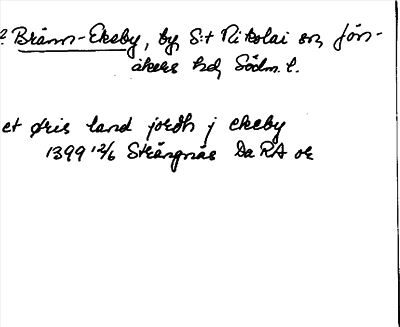 ? Bränn-Ekeby, by, S:t Nikolai sn, Jön-
åkers hd, Södm. l.
et øris land jordh j ekeby
1399 12/6 Strängnäs Da RA or